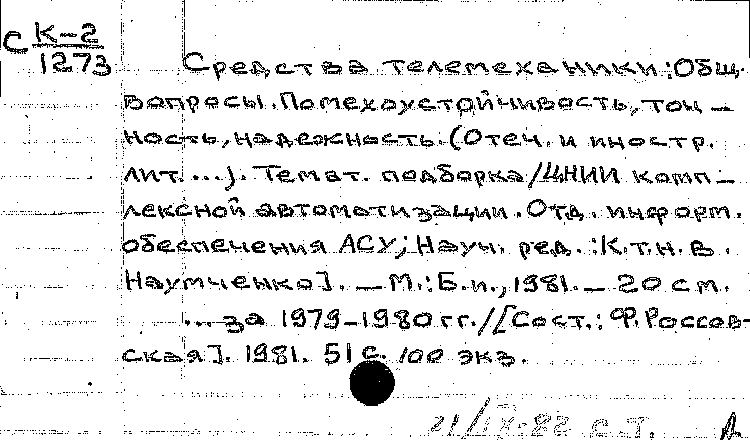 С К-2
1273
Средства телемеханики: Общ.
вопросы. Помехоустойчивость, точ-
ность, надежность. (Отеч. и иностр.
лит. ...). Темат. подборка / ЦНИИ комп-
лексной автоматизации. Отд. информ.
обеспечения АСУ; Науч. ред.: К.т.н. В.
Наумченко]. — М.: Б.и., 1981. — 20 см.
... за 1979-1980 гг. / [Сост.: Ф. Россов-
ская]. 1981. 51 с. 100 экз.